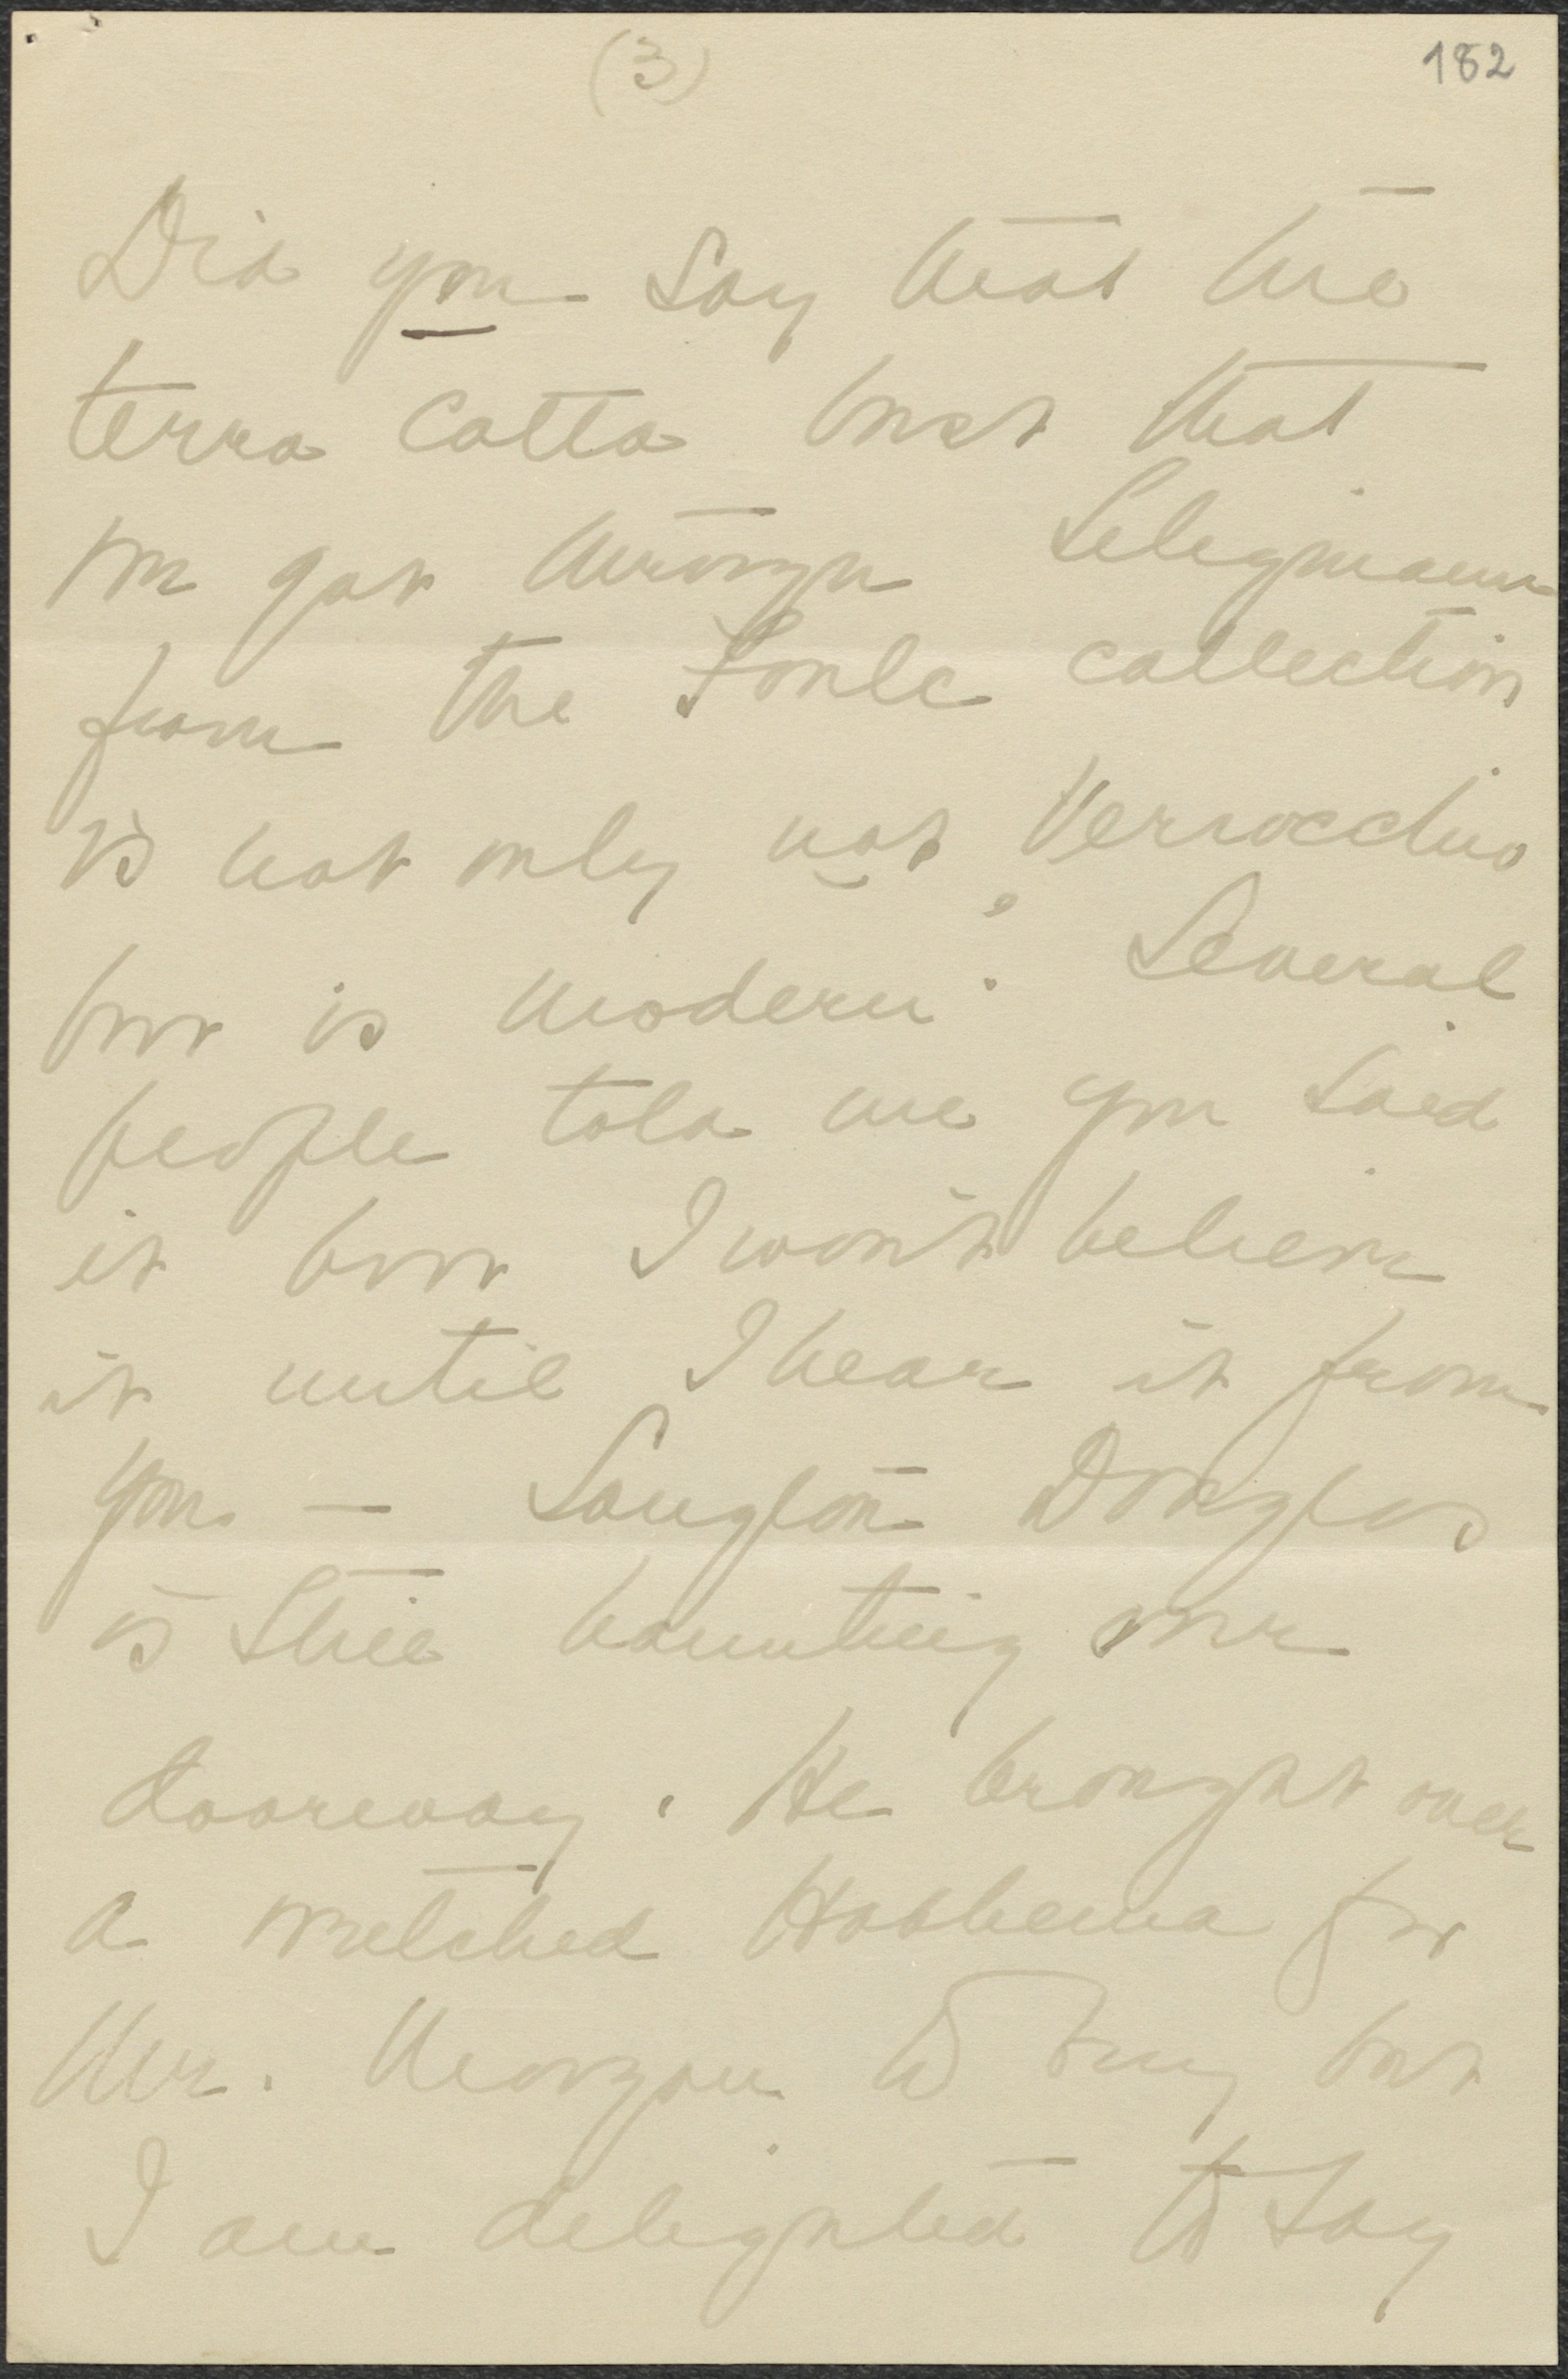 (3)
182
Did you say that the
terra cotta bust that
we got through Seligmann
from the Foulc collection
is not only not Verrocchio
but is modern? Several
people told me you said
it but I won't believe
it until I hear it from
you — Langton Douglas
is still haunting our
doorway. He brought over
a wretched Hobbema for
Mr. Morgan to buy but
I am delighted to say